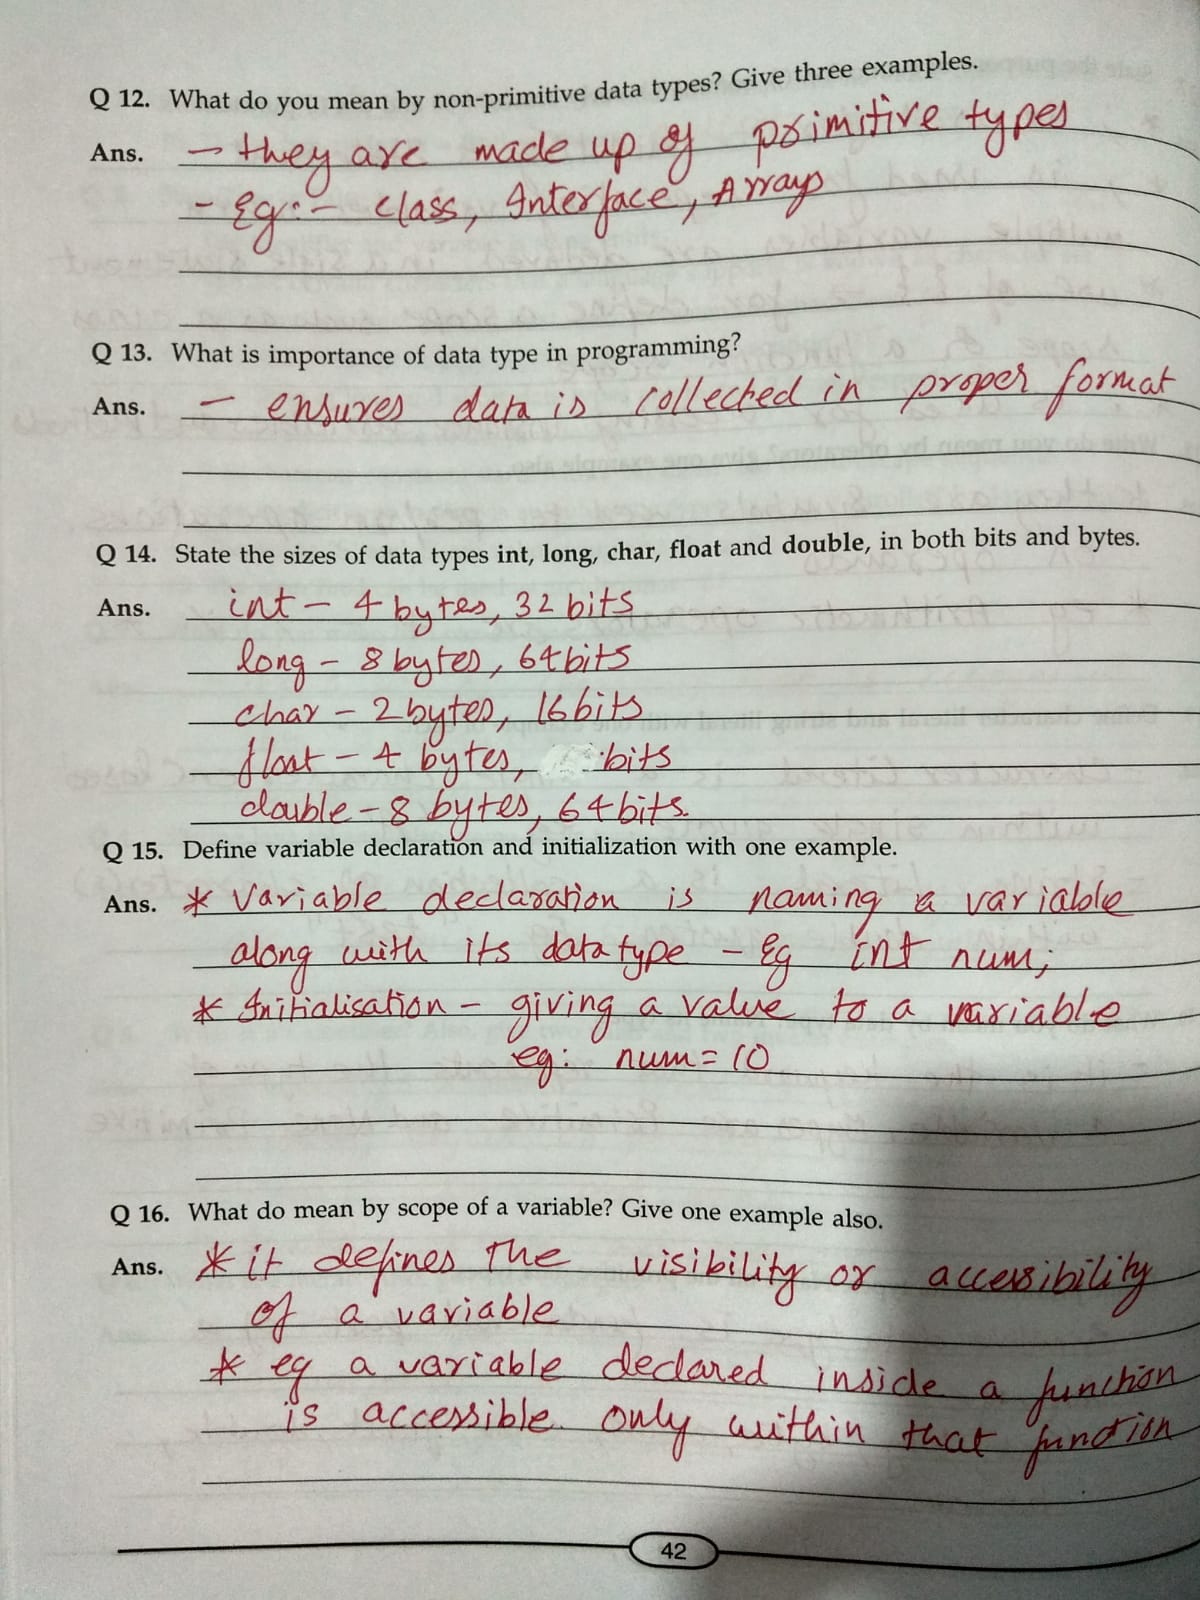 Q 12. What do you mean by non-primitive data types? Give three examples.
Ans. – they are made up of primitive types
- Eg:- Class, Interface, Arrays
Q 13. What is importance of data type in programming?
Ans. – ensures data is collected in proper format
Q 14. State the sizes of data types int, long, char, float and double, in both bits and bytes.
Ans. int – 4 bytes, 32 bits
long – 8 bytes, 64 bits
char – 2 bytes, 16 bits
float – 4 bytes, bits
double – 8 bytes, 64 bits.
Q 15. Define variable declaration and initialization with one example.
Ans. * Variable declaration is naming a variable
along with its data type – Eg int num;
* Initialisation – giving a value to a variable
eg: num = 10
Q 16. What do mean by scope of a variable? Give one example also.
Ans. * it defines the visibility or accessibility
of a variable
* eg a variable declared inside a function
is accessible only within that function
42